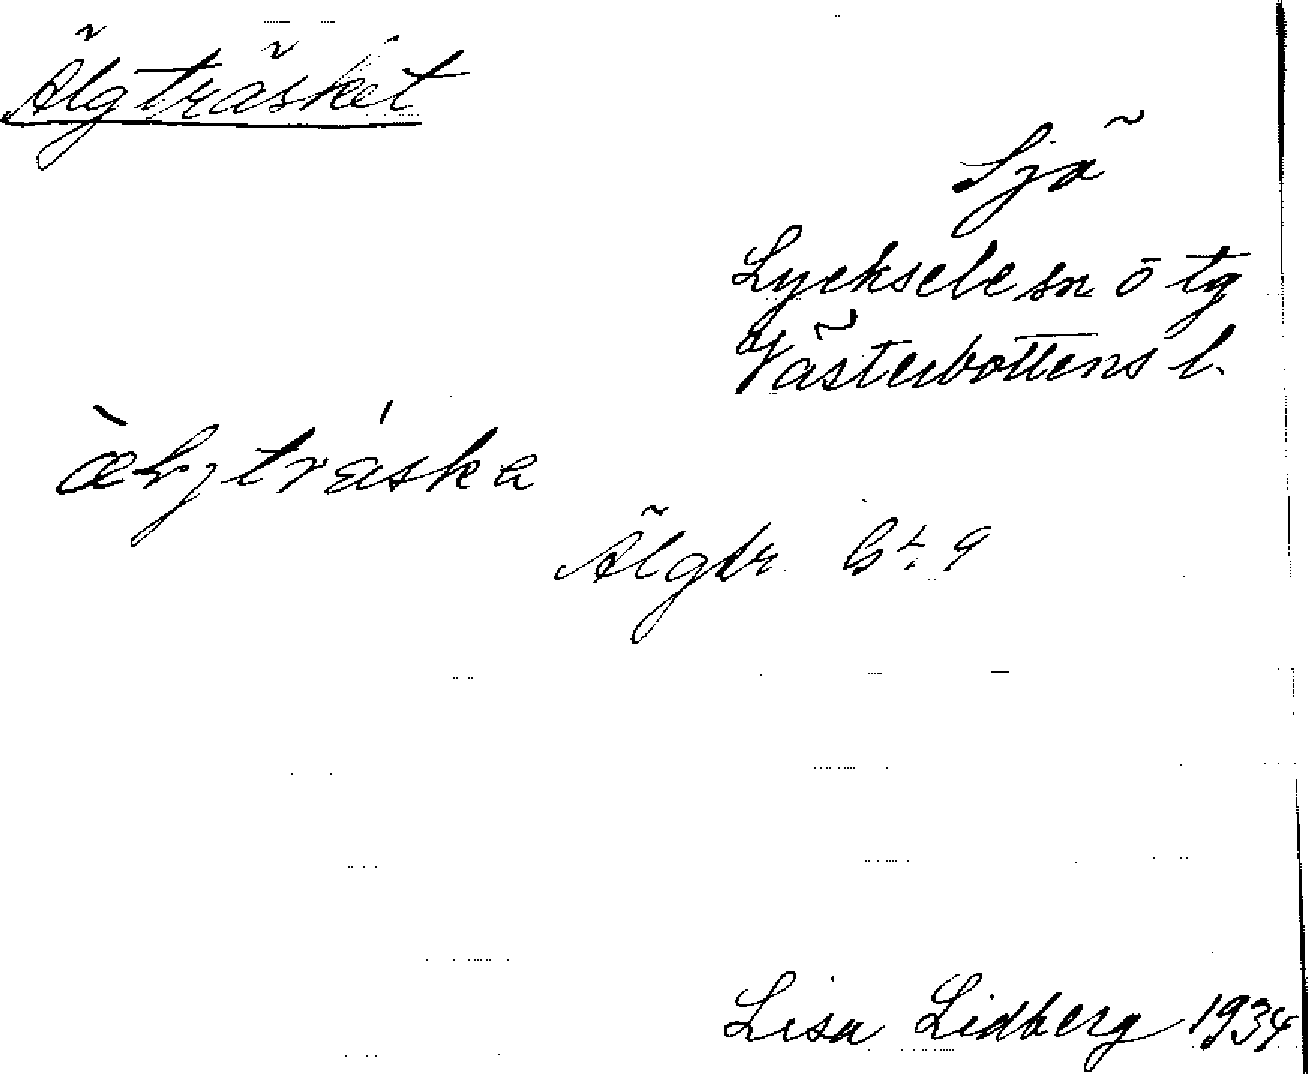 Älgträsket
Sjö
Lycksele sn o tg
Västerbottens l.
æ̀ljtráska
Älgtr.
Lisa Lidberg 1934